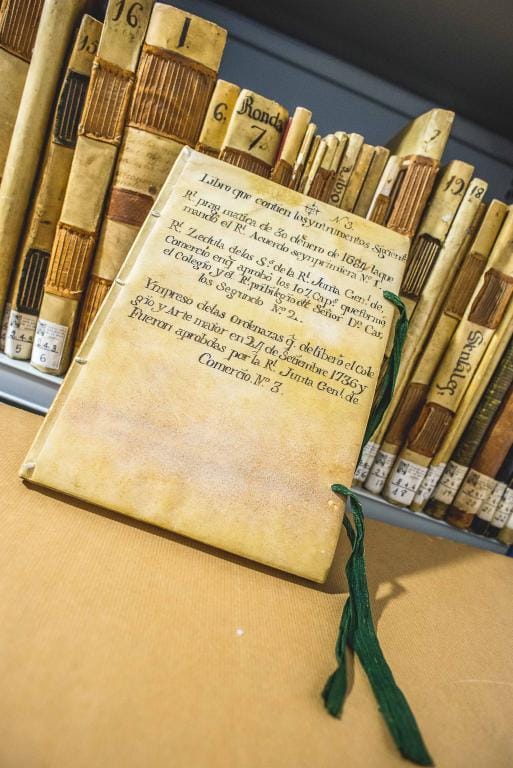 N. 3.
Libro que contien los ynstrumentos Siguien.
R.¹ pragmatica de 30 de enero de 1684 laque
mandó el R.¹ Acuerdo se ynprimiera N.º 1.
R.¹ Zedula de las S.ˢ de la R.¹ Junta Gen.¹ de
Comercio en q aprobó los 107 Cap.ˢ que formó
el Colegio y el R.¹ pribilegio de Señor D.ⁿ Car
los Segundo N.º 2.
Ympreso de las Ordenazas q. de libero el Cole
gio y Arte maior en 27 de Setiembre 1736 y
Fueron aprobadas por la R.¹ Junta Gen.¹ de
Comercio N.º 3.
15
16
1
6
Ronda
7
2
19
18
Señales